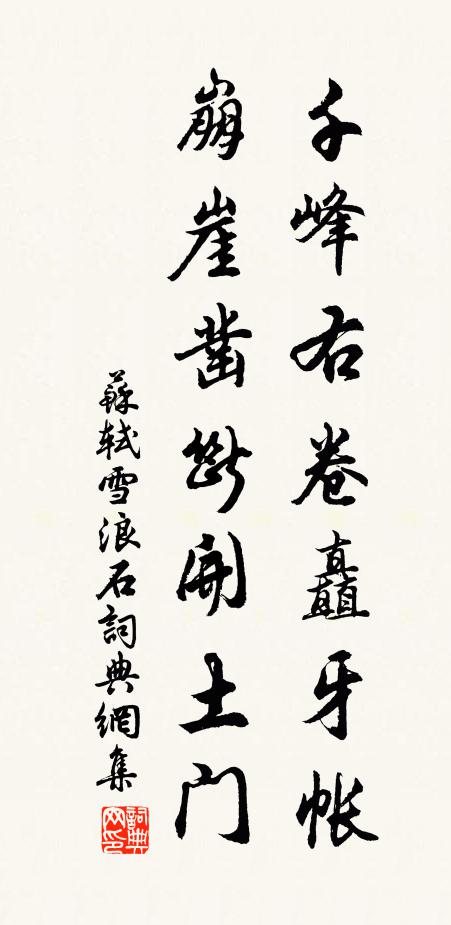 千峰右卷矗牙帐
崩崖凿断开土门
蘇軾雪浪石詞典網集
詞典网印